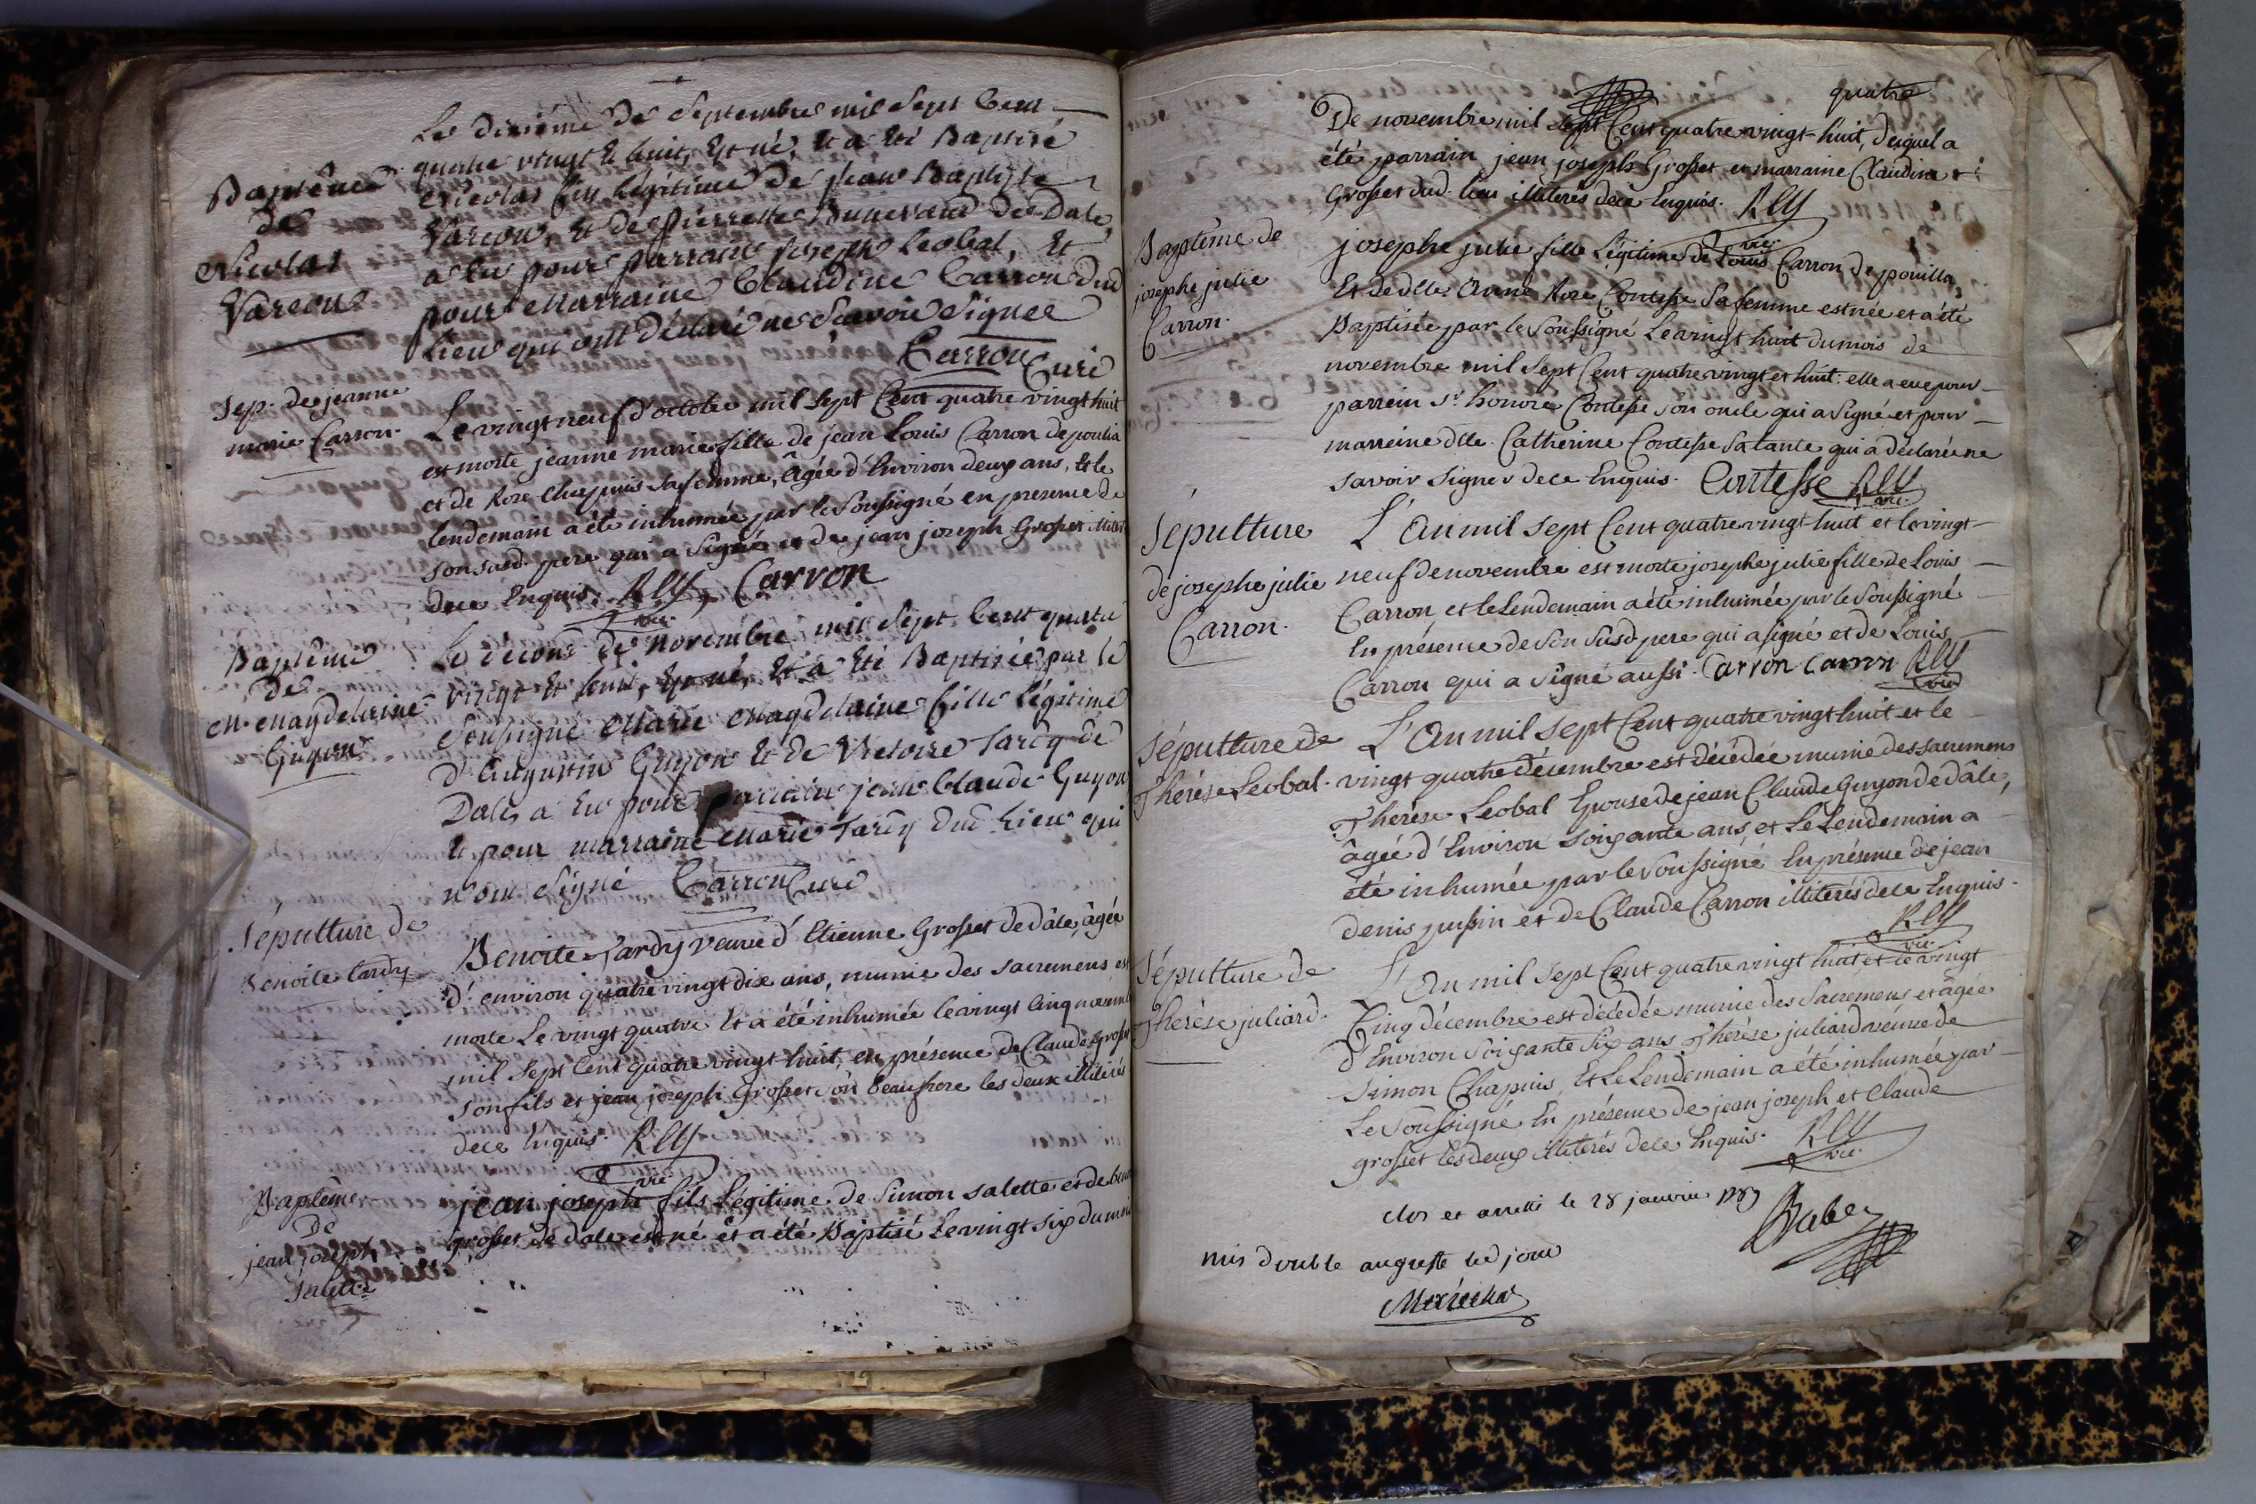 Le dixiéme de Septembre mil Sept Cent
quatre vingt & huit, Est né, Et a Eté Baptisé
Nicolas fils légitime de Jean Baptiste
Varcou, Et de Pierrette Bunevard de Dale,
a Eu pour parrain Joseph Leobal, Et
pour Marraine Claudine Carron dud
Lieu qui ont déclaré ne Scavoir Signer
Carron Curé
Baptême
de
Nicolas
Varcou
Sep. de jeanne
marie Carron.
Le vingt neuf d'octobre mil Sept Cent quatre vingt huit
est morte jeanne marie fille de jean Louis Carron de poulia
et de Rose Chapuis Sa femme, âgée d'Environ deux ans, Et le
lendemain a été inhumée par le Soussigné en presence de
son susd. pere qui a Signé et de jean joseph Grosset
de ce Enquis. Rey Carron
vic.
Baptême
de
M. Magdelaine
Guyon
Le Second de Novembre mil Sept Cent quatre
vingt Et huit, Est né, Et a Eté Baptisée par le
Soussigné Marie Magdelaine fille Légitime
d'Augustin Guyon Et de Victoire Tardy de
Dale, a Eu pour parrain jean Claude Guyon
Et pour marraine Marie Tardy dud. Lieu qui
n'ont Signé Carron Curé
Sépulture de
Benoite tardy
Benoite Tardy veuve d'Etienne Grosset de dâle, âgée
d'environ quatre vingt dix ans, munie des sacremens est
morte Le vingt quatre Et a été inhumée le vingt Cinq novembre
mil Sept Cent quatre vingt huit, en présence de Claude Grosset
son fils et jean joseph Grosset son beaufrere les deux illiterés
de ce Enquis. Rey
vic.
Baptême
De
jean joseph
Salette
jean joseph fils Légitime de Simon Salette et de
grosset de dale est né et a été Baptisé Le vingt six du mois
quatre
De novembre mil sept Cent quatre vingt-huit, duquel a
été parrain jean joseph Grosset et marraine Claudine
Grosset dud. lieu illiterés de ce Enquis. Rey
vic.
Baptême de
josephe julie
Carron.
josephe julie fille Légitime de Louis Carron de pouilla,
Et de dlle. Anne Rose Contesse Sa femme est née et a été
Baptisée par le Soussigné Le vingt huit du mois de
novembre mil Sept Cent quatre vingt et huit: elle a eu pour
parrein Sr. honoré Contesse son oncle qui a Signé et pour
marreine dlle. Catherine Contesse Sa tante qui a déclaré ne
savoir Signer de ce Enquis. Contesse Rey
vic.
Sépulture
de josephe julie
Carron.
L'An mil Sept Cent quatre vingt huit et le vingt
neuf de novembre est morte josephe julie fille de Louis
Carron, et le Lendemain a été inhumée par le Soussigné
En présence de Son Susd. pere qui a signé et de Louis
Carron qui a signé aussi. Carron Carron Rey
vic.
Sépulture de
Thérése Leobal.
L'An mil Sept Cent quatre vingt huit et le
vingt quatre décembre est décédée munie des sacremens
Thérése Leobal Epouse de jean Claude Guyon de dâle,
âgée d'Environ Soixante ans, et Le Lendemain a
été inhumée par le Soussigné En présence de jean
denis jussin et de Claude Carron illiterés de ce Enquis.
Rey
vic.
Sépulture de
Thérése juliard.
L'An mil Sept Cent quatre vingt huit et le vingt
Cinq décembre est décédée munie des Sacremens et âgée
d'Environ Soixante Six ans Thérése juliard veuve de
Simon Chapuis, Et Le Lendemain a été inhumée par
Le Soussigné En présence de jean joseph et Claude
grosset les deux illiterés de ce Enquis. Rey
vic.
Clos et arretté le 28 janvier 1789
mis double au greffe led jour